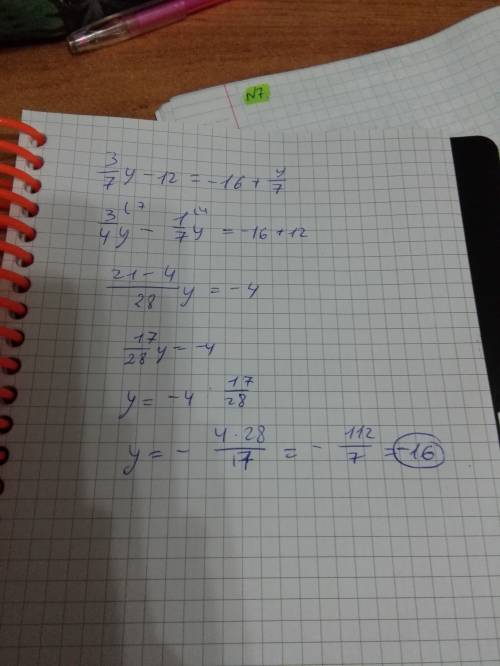 N7
3/7 y - 12 = -16 + y/7
3/4 (7 y - 1/7 (4 y = -16 + 12
21 - 4/28 y = -4
17/28 y = -4
y = -4 17/28
y = - 4 · 28/17 = - 112/7 = -16